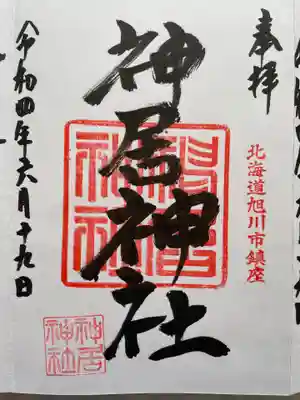 奉拝
北海道旭川市鎮座
神居神社
神居
神社
令和四年六月十九日